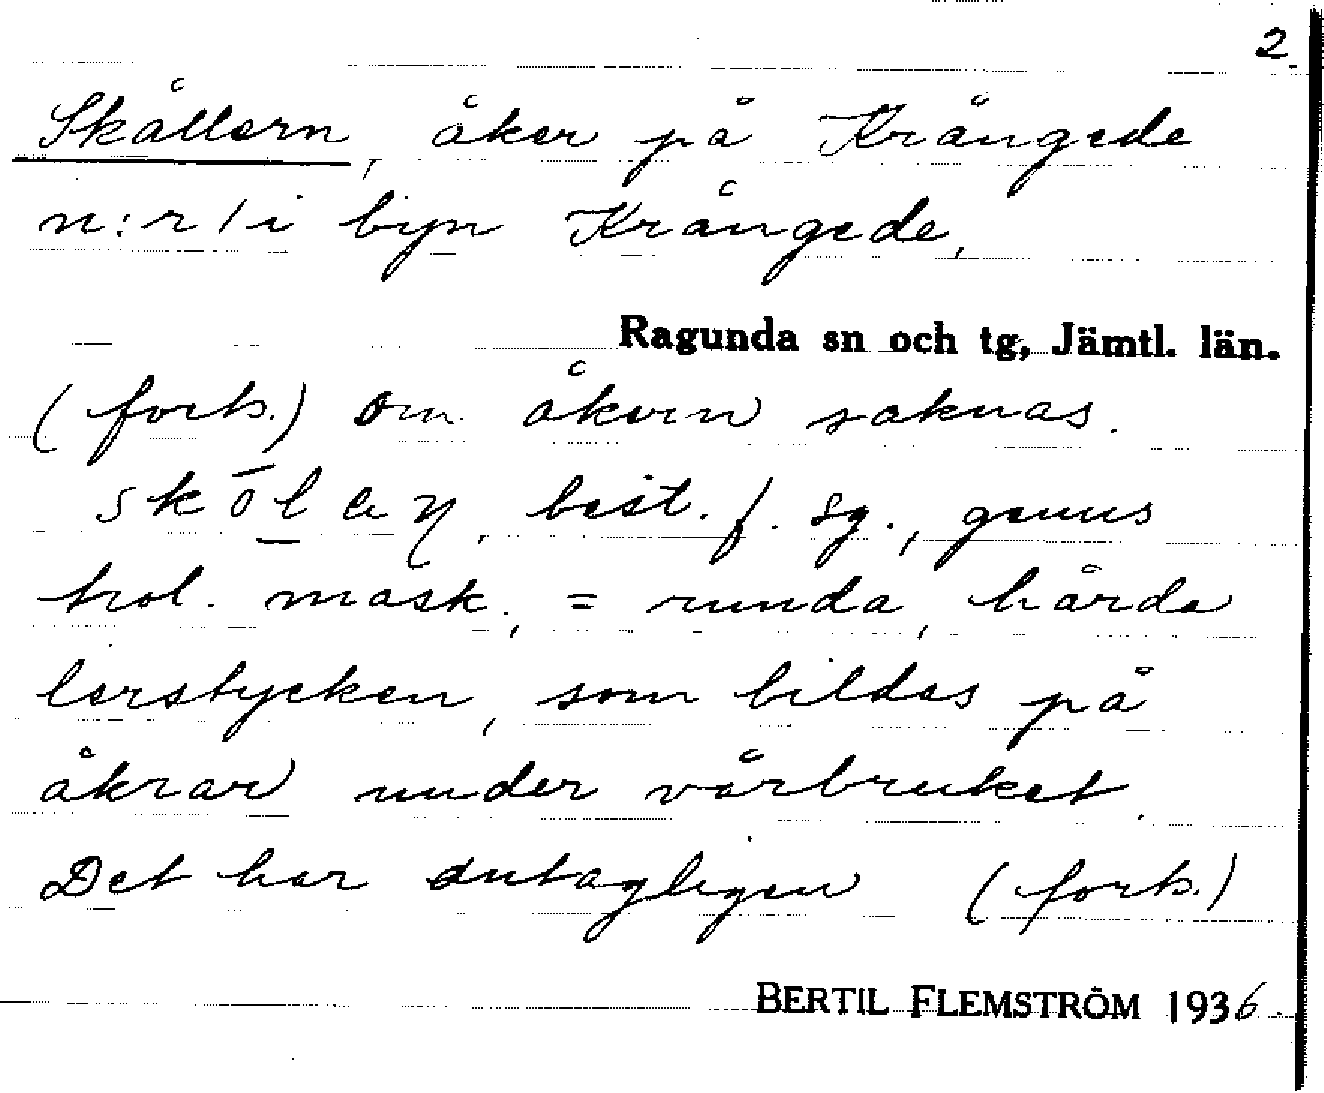 2.
Skållern, åker på Krångede
n:r 1 i byn Krångede,
Ragunda sn och tg, Jämtl. län.
(forts.) om åkern saknas.
best. f. sg., genus
trol. mask., = runda, hårda
lerstycken, som bildas på
åkrar under vårbruket.
Det har antagligen (forts.)
BERTIL FLEMSTRÖM 1936.